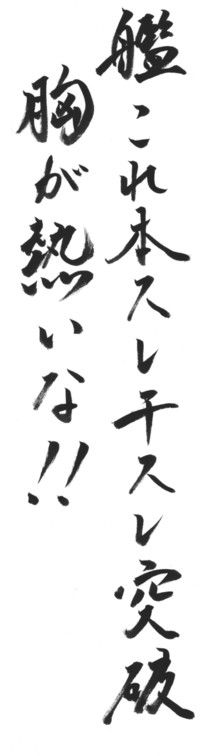 艦これ本スレ千スレ突破
胸が熱いな!!